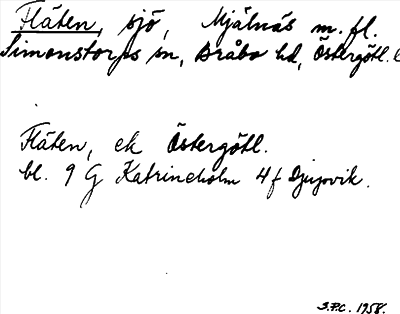 Fläten, sjö, Mjälnäs m.fl.
Simonstorps sn, Bråbo hd, Östergötl. l
Fläten, ek Östergötl.
bl. 9 G Katrineholm 4 f Djupvik.
S.P.C. 1958.